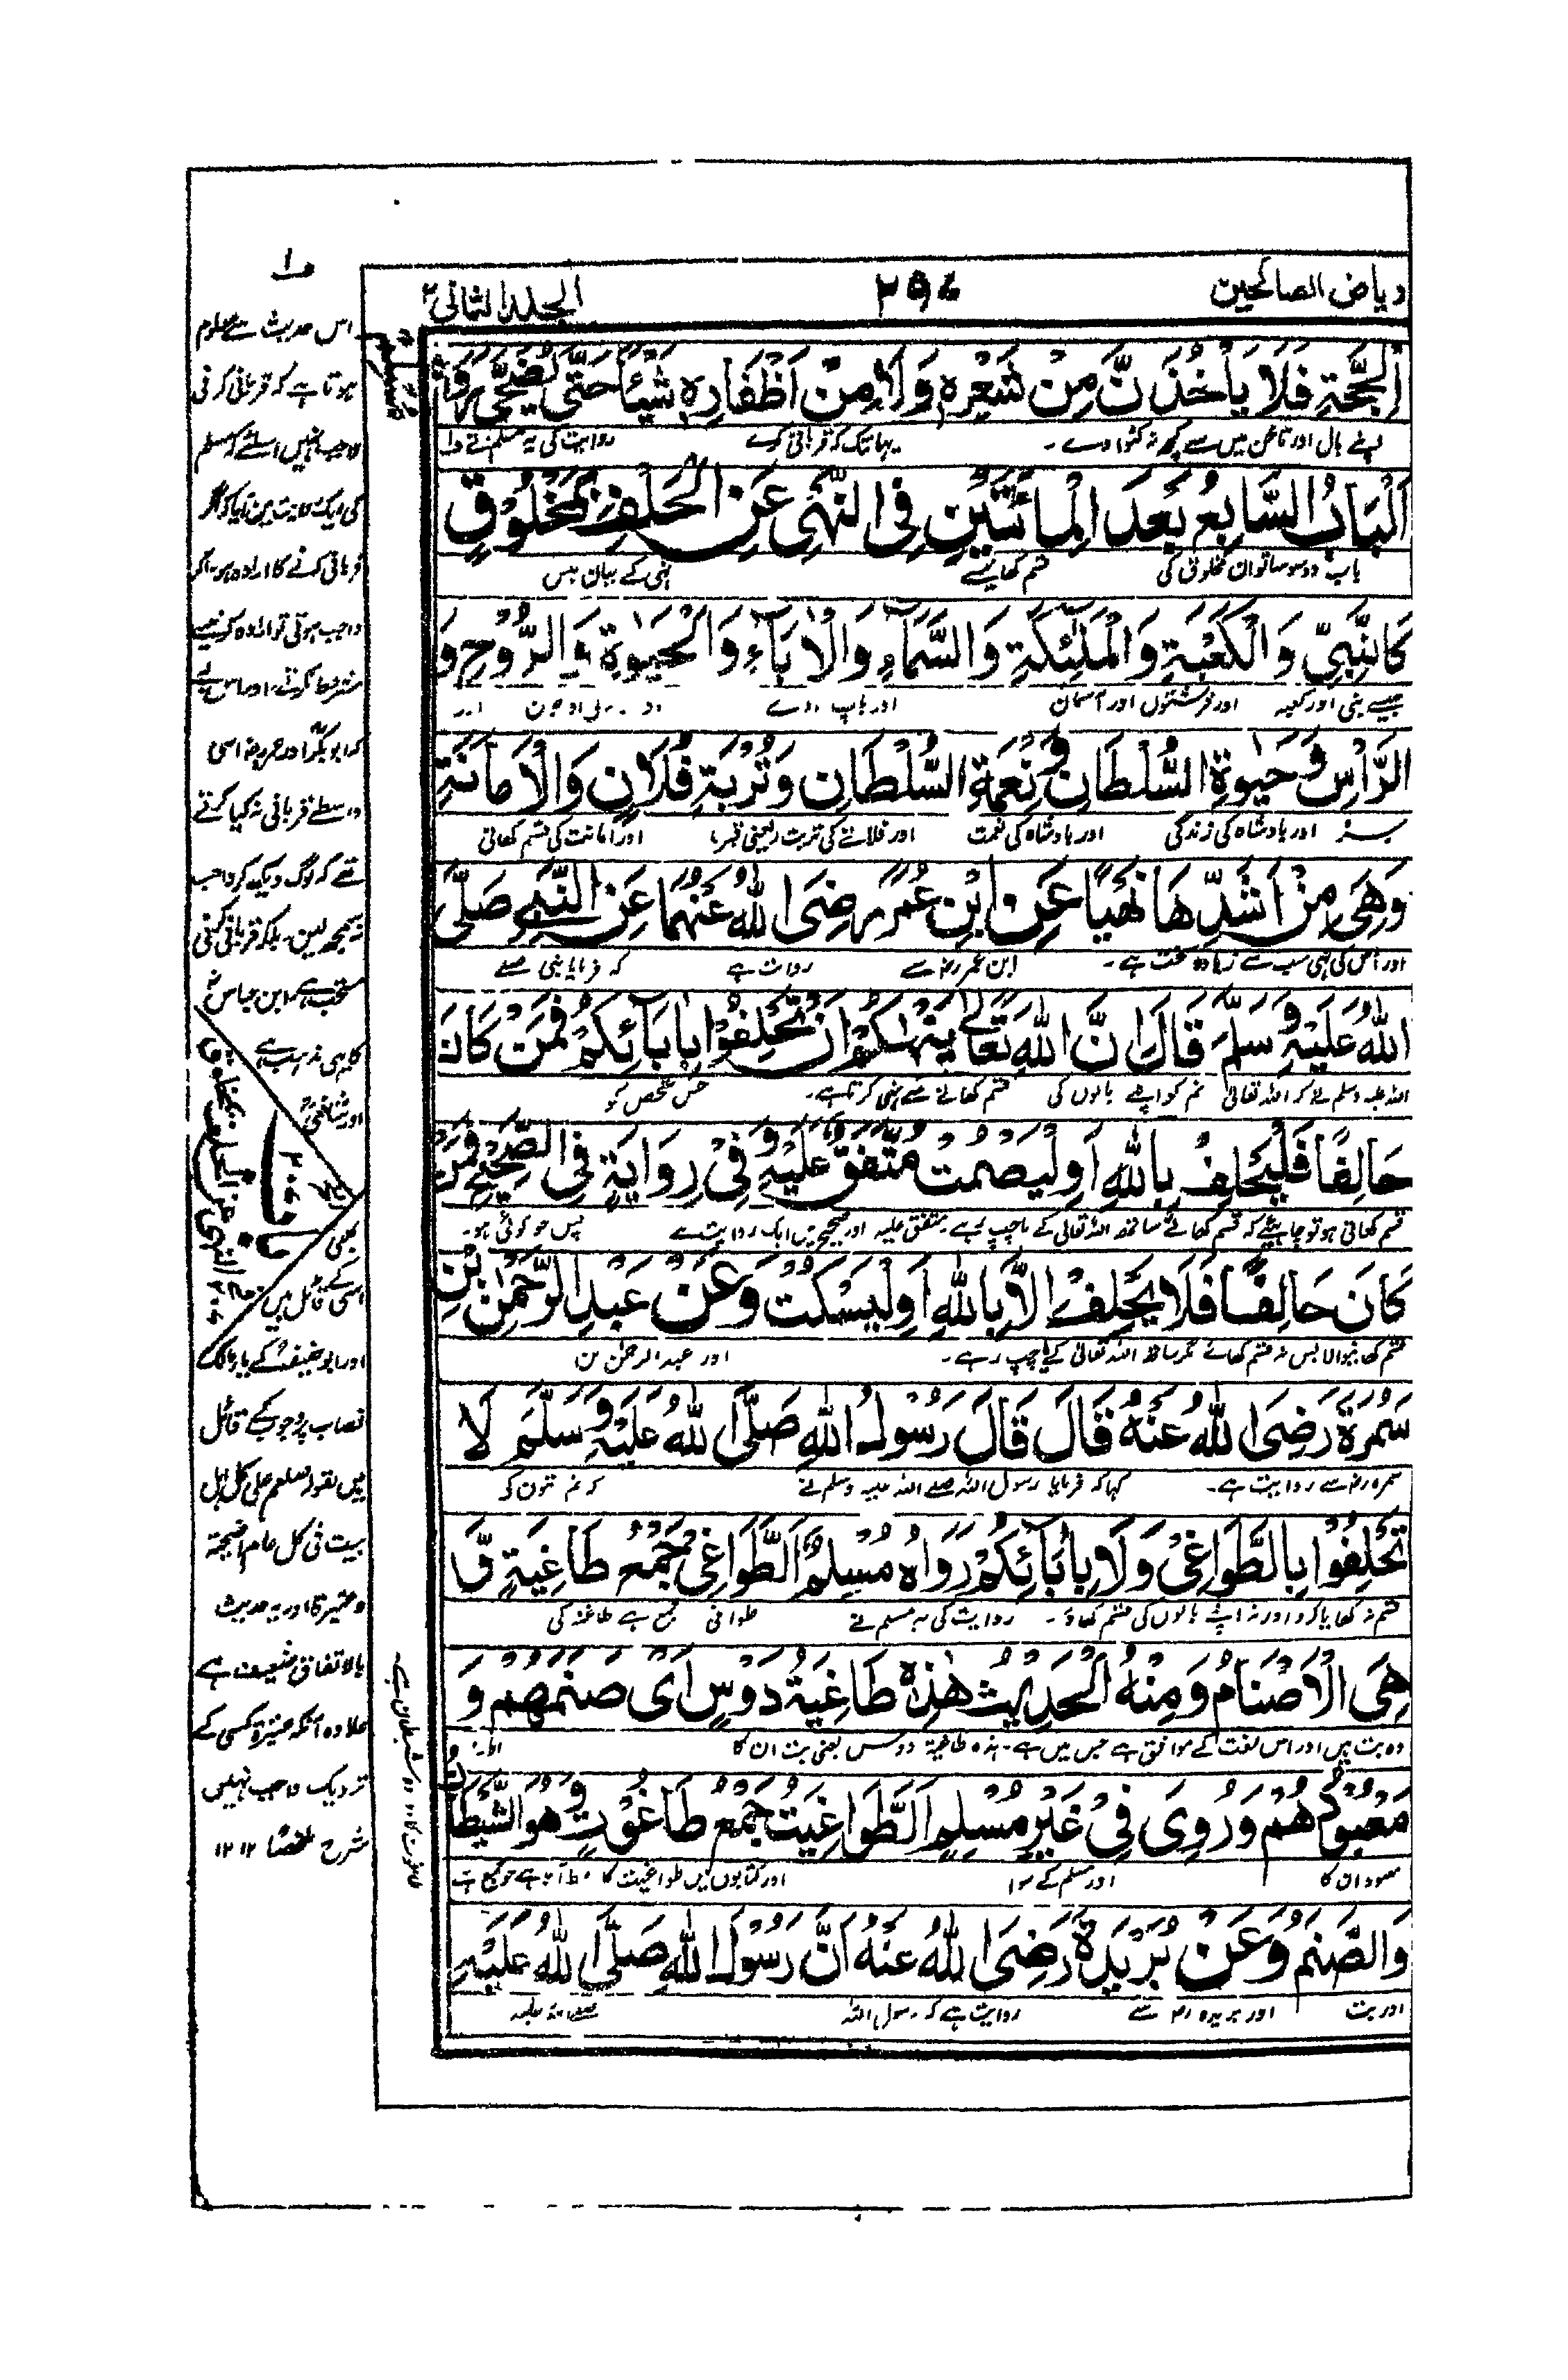 رياض الصالحين
٢٩٤
الجلد الثانى ٢
الْحِجَّةِ فَلَا يَأْخُذَنَّ مِنْ شَعْرِهٖ وَلَا مِنْ اَظْفَارِهٖ شَيْئًا حَتّٰى يُضَحِّىَ رَوَاهُ
اپنے بال اور ناخن میں سے کچھ نہ کٹوا دے ۔ یہانتک کہ قربانی کرے روایت کی یہ مسلم نے
اَلْبَابُ السَّابِعُ بَعْدَ الْمِائَتَيْنِ فِى النَّهْىِ عَنِ الْحَلْفِ بِمَخْلُوْقٍ
باب دو سو ساتواں مخلوق کی قسم کھانے سے نہی کے بیان میں
كَالنَّبِىِّ وَالْكَعْبَةِ وَالْمَلٰئِكَةِ وَالسَّمَآءِ وَالْاٰبَآءِ وَالْحَيٰوةِ وَالرُّوْحِ وَ
جیسے نبی اور کعبہ اور فرشتوں اور آسمان اور باپ دادے اور
الرَّاْسِ وَحَيٰوةِ السُّلْطَانِ وَنِعْمَةِ السُّلْطَانِ وَتُرْبَةِ فُلَانٍ وَالْاَمَانَةِ
سر اور بادشاہ کی زندگی اور بادشاہ کی نعمت اور فلانے کی تربت یعنی قبر اور امانت کی قسم کھانی
وَهِىَ مِنْ اَشَدِّهَا نَهْيًا عَنِ ابْنِ عُمَرَ رَضِىَ اللّٰهُ عَنْهُمَا عَنِ النَّبِىِّ صَلَّى
اور اس کی نہی سب سے زیادہ سخت ہے ۔ ابن عمر رضہ سے روایت ہے کہ فرمایا نبی صلے
اللّٰهُ عَلَيْهِ وَسَلَّمَ قَالَ اِنَّ اللّٰهَ تَعَالٰى يَنْهٰىكُمْ اَنْ تَحْلِفُوْا بِاٰبَآئِكُمْ فَمَنْ كَانَ
اللہ علیہ وسلم نے کہ اللہ تعالیٰ تم کو اپنے باپوں کی قسم کھانے سے نہی کرتا ہے ۔ جس شخص کو
حَالِفًا فَلْيَحْلِفْ بِاللّٰهِ اَوْ لِيَصْمُتْ مُتَّفَقٌ عَلَيْهِ وَفِىْ رِوَايَةٍ فِى الصَّحِيْحِ فَمَنْ
قسم کھانی ہو تو چاہیئے کہ قسم کھائے ساتھ اللہ تعالیٰ کے یا چپ رہے ۔ متفق علیہ اور صحیح میں ایک روایت ہے پس جو کوئی ہو ۔
كَانَ حَالِفًا فَلَا يَحْلِفْ اِلَّا بِاللّٰهِ اَوْ لِيَسْكُتْ وَعَنْ عَبْدِ الرَّحْمٰنِ بْنِ
قسم کھانیوالا پس نہ قسم کھائے مگر ساتھ اللہ تعالیٰ کے یا چپ رہے ۔ اور عبد الرحمٰن بن
سَمُرَةَ رَضِىَ اللّٰهُ عَنْهُ قَالَ قَالَ رَسُوْلُ اللّٰهِ صَلَّى اللّٰهُ عَلَيْهِ وَسَلَّمَ لَا
سمرہ رضہ سے روایت ہے ۔ کہا کہ فرمایا رسول اللہ صلے اللہ علیہ وسلم نے کہ تم بتوں کی
تَحْلِفُوْا بِالطَّوَاغِىْ وَلَا بِاٰبَآئِكُمْ رَوَاهُ مُسْلِمٌ اَلطَّوَاغِىْ جَمْعُ طَاغِيَةٍ وَّ
قسم نہ کھایا کرو اور نہ اپنے باپوں کی قسم کھاؤ ۔ روایت کی یہ مسلم نے طواغی جمع ہے طاغیہ کی
هِىَ الْاَصْنَامُ وَمِنْهُ الْحَدِيْثُ هٰذِهٖ طَاغِيَةُ دَوْسٍ اَىْ صَنَمُهُمْ وَ
وہ بت ہیں اور اس لغت کے موافق ہے جس میں ہے ۔ ہذہ طاغیۃ دوس یعنی بت ان کا
مَعْبُوْدُهُمْ وَرُوِىَ فِىْ غَيْرِ مُسْلِمٍ اَلطَّوَاغِيْتُ جَمْعُ طَاغُوْتٍ وَهُوَ الشَّيْطَانُ
معبود ان کا اور مسلم کے سوا اور کتابوں میں طواغیت کا لفظ آیا ہے جو جمع ہے
وَالصَّنَمُ وَعَنْ بُرَيْدَةَ رَضِىَ اللّٰهُ عَنْهُ اَنَّ رَسُوْلَ اللّٰهِ صَلَّى اللّٰهُ عَلَيْهِ
اور بت اور بریدہ رضہ سے روایت ہے کہ رسول اللہ صلے اللہ علیہ
اس حدیث سے معلوم
ہوتا ہے کہ قربانی کرنی
واجب نہیں اسلئے کہ مسلم
کی ایک روایت میں آیا کہ اگر
قربانی کرنے کا ارادہ ہو ۔ اگر
واجب ہوتی تو ارادہ کو نہ
مشروط کرتے ۔ اور اس لئے
کہ ابوبکر اور عمر رضہ اسی
واسطے قربانی نہ کیا کرتے
تھے کہ لوگ دیکھ کر واجب
نہ سمجھ لیں ۔ بلکہ قربانی کرنی
مستحب ہے ، ابن عباس
کا یہی مذہب ہے
اور شافعی
بھی
اسی کے قائل ہیں
اور ابو حنیفہ کے
نصاب پر وجوب کے قائل
ہیں لقولہ صلعم علی کل اہل
بیت فی کل عام اضحیۃ
وعتیرۃ اور یہ حدیث
بالاتفاق ضعیف ہے
علاوہ انکہ عتیرۃ کسی کے
نزدیک واجب نہیں
شرح ملخصًا ١٢ ١٢
باب ٢٠٧
النہی عن الحلف بمخلوق